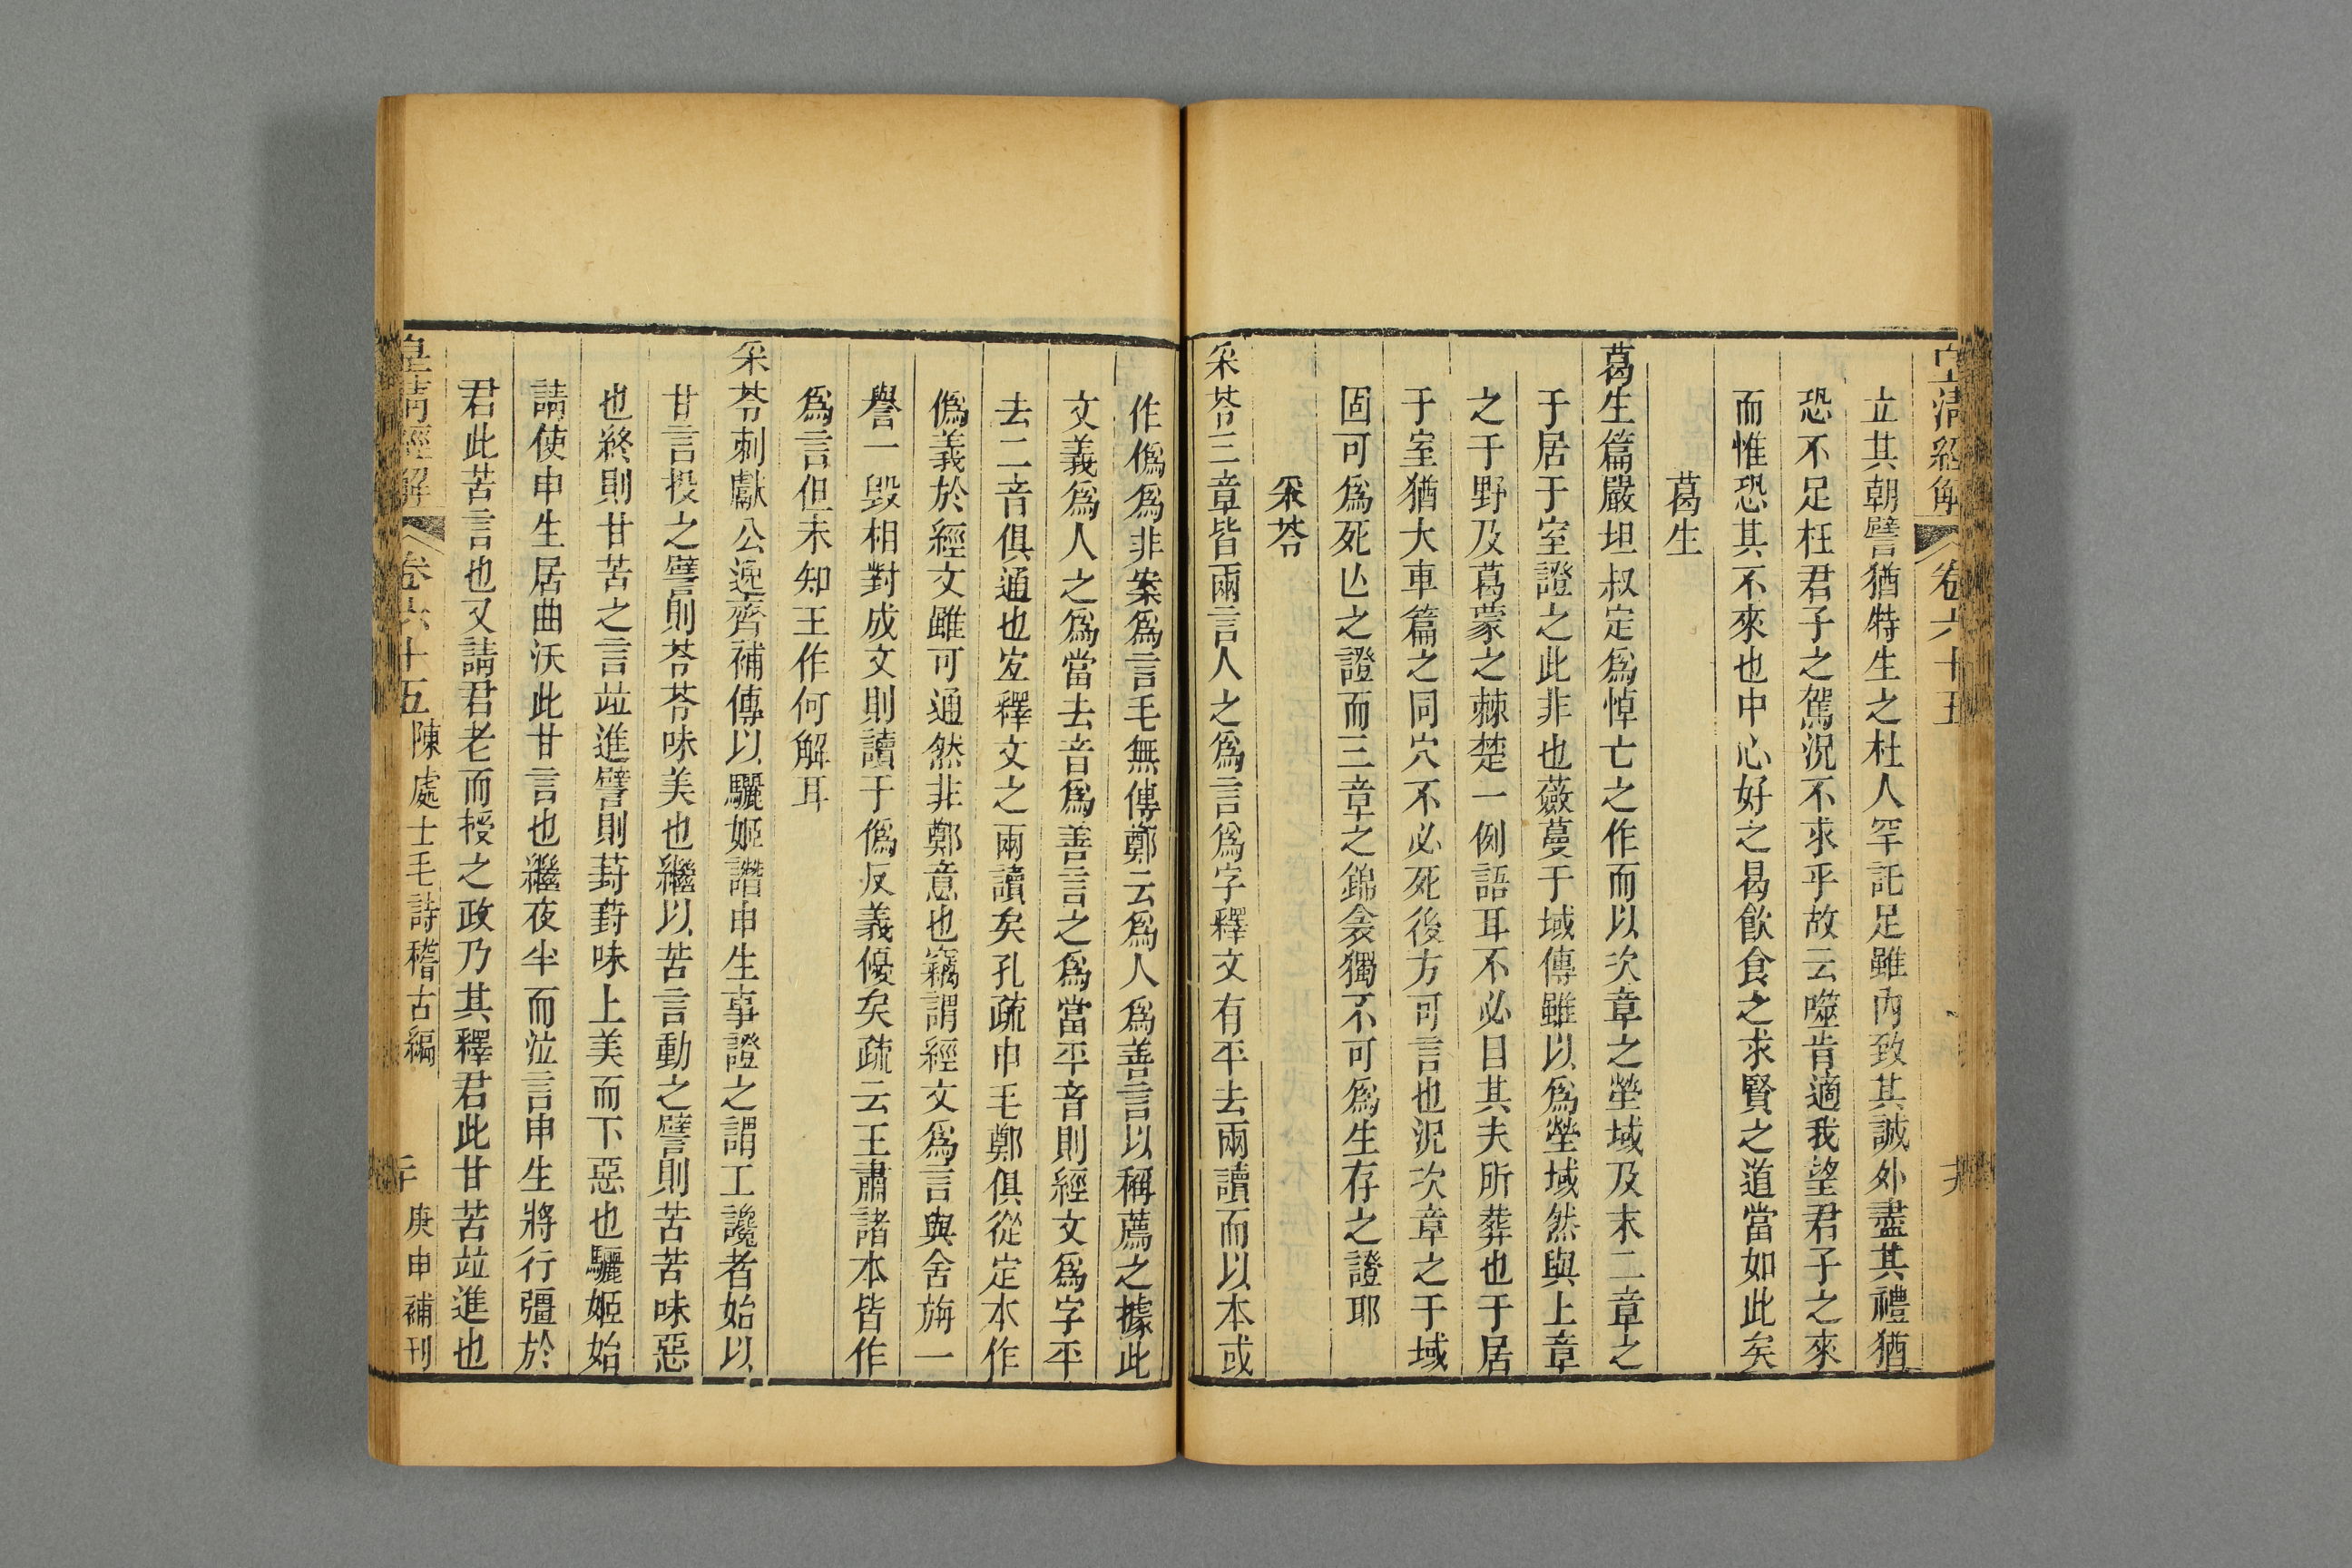 皇清經解 卷六十五
立其朝譬猶特生之杜人罕託足雖內致其誠外盡其禮猶
恐不足枉君子之駕況不求乎故云噬肯適我望君子之來
而惟恐其不來也中心好之曷飮食之求賢之道當如此矣
葛生
葛生篇嚴坦叔定爲悼亡之作而以次章之塋域及末二章之
于居于室證之此非也蘞蔓于域傳雖以爲塋域然與上章
之于野及葛蒙之棘楚一例語耳不必目其夫所葬也于居
于室猶大車篇之同穴不必死後方可言也況次章之于域
固可爲死亾之證而三章之錦衾獨不可爲生存之證耶
采苓
采苓三章皆兩言人之爲言爲字釋文有平去兩讀而以本或
作僞爲非案爲言毛無傳鄭云爲人爲善言以稱薦之據此
文義爲人之爲當去音爲善言之爲當平音則經文爲字平
去二音俱通也宐釋文之兩讀矣孔疏申毛鄭俱從定本作
僞義於經文雖可通然非鄭意也竊謂經文爲言與舍旃一
譽一毀相對成文則讀于僞反義優矣疏云王肅諸本皆作
爲言但未知王作何解耳
采苓刺獻公逸齋補傳以驪姬譖申生事證之謂工讒者始以
甘言投之譬則苓苓味美也繼以苦言動之譬則苦苦味惡
也終則甘苦之言竝進譬則葑葑味上美而下惡也驪姬始
請使申生居曲沃此甘言也繼夜半而泣言申生將行彊於
君此苦言也又請君老而授之政乃其釋君此甘苦竝進也
皇清經解 卷六十五 陳處士毛詩稽古編 庚申補刊